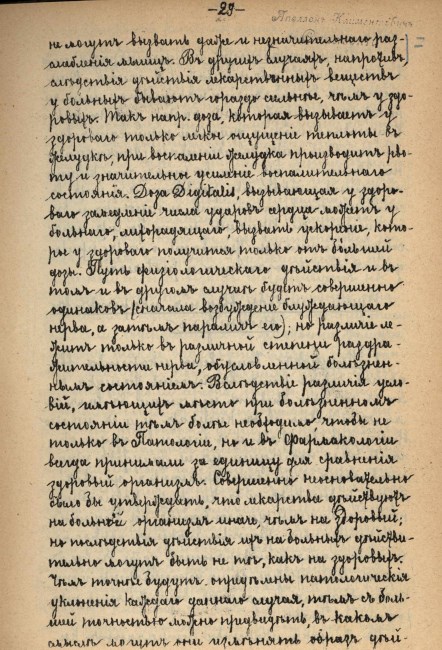 –29–
не могутъ вызвать даже и незначительнаго раз-
слабленія мышцъ. Въ другихъ случаяхъ, напротивъ,
слѣдствія дѣйствія лекарственныхъ веществъ
у больныхъ бываютъ гораздо сильнѣе, чѣмъ у здо-
ровыхъ. Такъ напр. доза, которая вызываетъ у
здороваго только легкое ощущеніе теплоты въ
желудкѣ, при воспаленіи желудка производитъ рво-
ту и значительное усиленіе воспалительнаго
состоянія. Доза Digitalis, вызывающая у здоро-
ваго замедленіе числа ударовъ сердца можетъ у
больнаго, лихорадящаго, вызвать ускореніе, кото-
рое у здороваго получится только отъ бо́льшей
дозы. Путь физіологическаго дѣйствія и въ
томъ и въ другомъ случаѣ будетъ совершенно
одинаковъ (сначала возбужденіе блуждающаго
нерва, а затѣмъ параличъ его); но различіе ле-
житъ только въ различной степени раздра-
жительности нерва, обусловленной болѣзнен-
нымъ состояніемъ. Вслѣдствіе различія усло-
вій, имѣющихъ мѣсто при болѣзненномъ
состояніи тѣмъ болѣе необходимо, чтобы не
только въ Патологіи, но и въ Фармакологіи
всегда принимали за единицу для сравненія
здоровый организмъ. Совершенно неосновательно
было бы утверждать, что лекарства дѣйствуютъ
на больной организмъ иначе, чѣмъ на здоровый;
но послѣдствія дѣйствія ихъ на больныхъ дѣйстви-
тельно могутъ быть не тѣ, какъ на здоровыхъ.
Чѣмъ точнѣе будутъ опредѣлены патологическія
уклоненія каждаго даннаго случая, тѣмъ съ боль-
шей точностью можно предвидѣть, въ какомъ
смыслѣ могутъ они измѣнять образъ дѣй-